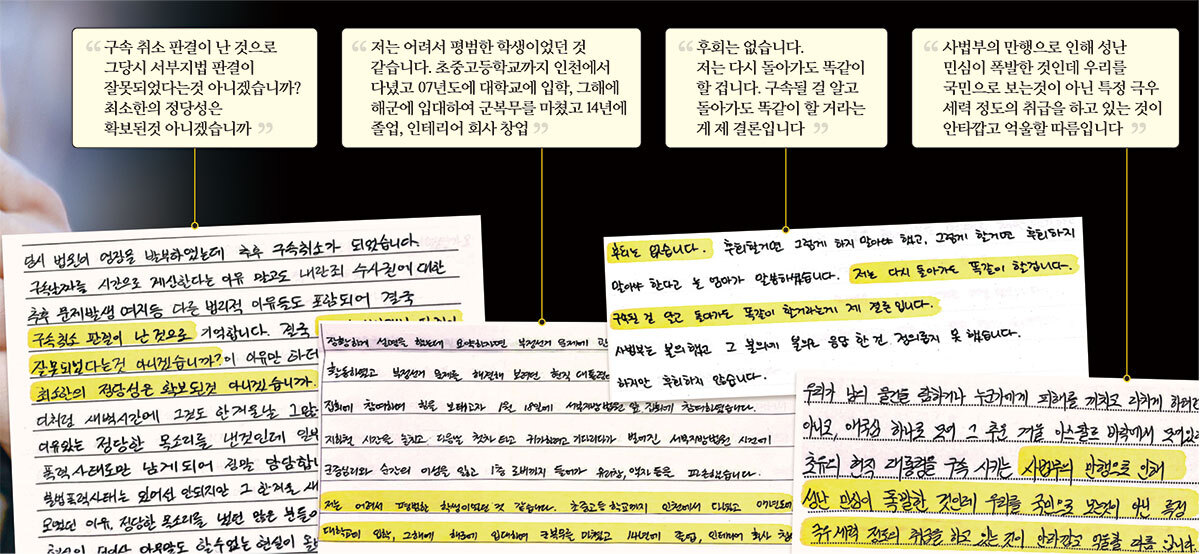 “구속 취소 판결이 난 것으로
그당시 서부지법 판결이
잘못되었다는것 아니겠습니까?
최소한의 정당성은
확보된것 아니겠습니까”
“저는 어려서 평범한 학생이었던 것
같습니다. 초중고등학교까지 인천에서
다녔고 07년도에 대학교에 입학, 그해에
해군에 입대하여 군복무를 마쳤고 14년에
졸업, 인테리어 회사 창업”
“후회는 없습니다.
저는 다시 돌아가도 똑같이
할 겁니다. 구속될 걸 알고
돌아가도 똑같이 할 거라는
게 제 결론입니다”
“사법부의 만행으로 인해 성난
민심이 폭발한 것인데 우리를
국민으로 보는것이 아닌 특정 극우
세력 정도의 취급을 하고 있는 것이
안타깝고 억울할 따름입니다”
당시 법원이 영장을 발부하였는데 추후 구속취소가 되었습니다.
구속날짜를 시간으로 계산한다는 이유 말고도 내란죄 수사권에 대한
추후 문제발생 여지등 다른 법리적 이유들도 포함되어 결국
구속취소 판결이 난 것으로 기억합니다. 결국
잘못되었다는것 아니겠습니까? 이 이유만 타더
최소한의 정당성은 확보된것 아니겠습니까.
더처럼 새벽시간에 그것도 한겨울날 그만큼
이유있는 정당한 목소리를 낸것인데 일부
폭력사태로만 남게 되어 정말 답답합
불법폭력사태는 있어선 안되지만 그 한겨울 새
모였던 이유, 정당한 목소리를 냈던 많은 분들이
아무말도 할수없는 현실이
장황하게 설명을 했는데 요약하자면 부정선거 문제에 관
활동하였고 부정선거 문제를 해결해 보려던 현직 대통령
집회에 참여하여 힘을 보태고자 1월 18일에 서부지방법원 앞 집회에 참여하였습니다.
지하철 시간을 놓치고 다음날 첫차 타고 귀가하려고 기다리다가 벌어진 서부지방법원 사건에
군중심리와 순간의 이성을 잃고 1층 로비까지 들어가 유리창, 액자 등을 파손했습니다.
저는 어려서 평범한 학생이었던 것 같습니다. 초중고등학교까지 인천에서 다녔고 07년도에
대학교에 입학, 그해에 해군에 입대하여 군복무를 마쳤고 14년에 졸업, 인테리어 회사 창
후회는 없습니다. 후회할거면 그렇게 하지 말아야 했고, 그렇게 할거면 후회하지
말아야 한다고 늘 엄마가 말씀하셨습니다. 저는 다시 돌아가도 똑같이 할겁니다.
구속될 걸 알고 돌아가도 똑같이 할거라는게 제 결론입니다.
사법부는 불의했고 그 불의에 불의로 응답한 건 정의롭지 못 했습니다.
하지만 후회하지 않습니다.
우리가 남의 물건을 탐하거나 누군가에게 피해를 끼치고 다치게 하려던
아니고, 애국심 하나로 모여 그 추운 겨울 아스팔트 바닥에서 모여있
초유의 현직 대통령을 구속 시키는 사법부의 만행으로 인해
성난 민심이 폭발한 것인데 우리를 국민으로 보는것이 아닌 특정
극우세력 정도의 취급을 하고 있는 것이 안타깝고 억울할 따름입니다